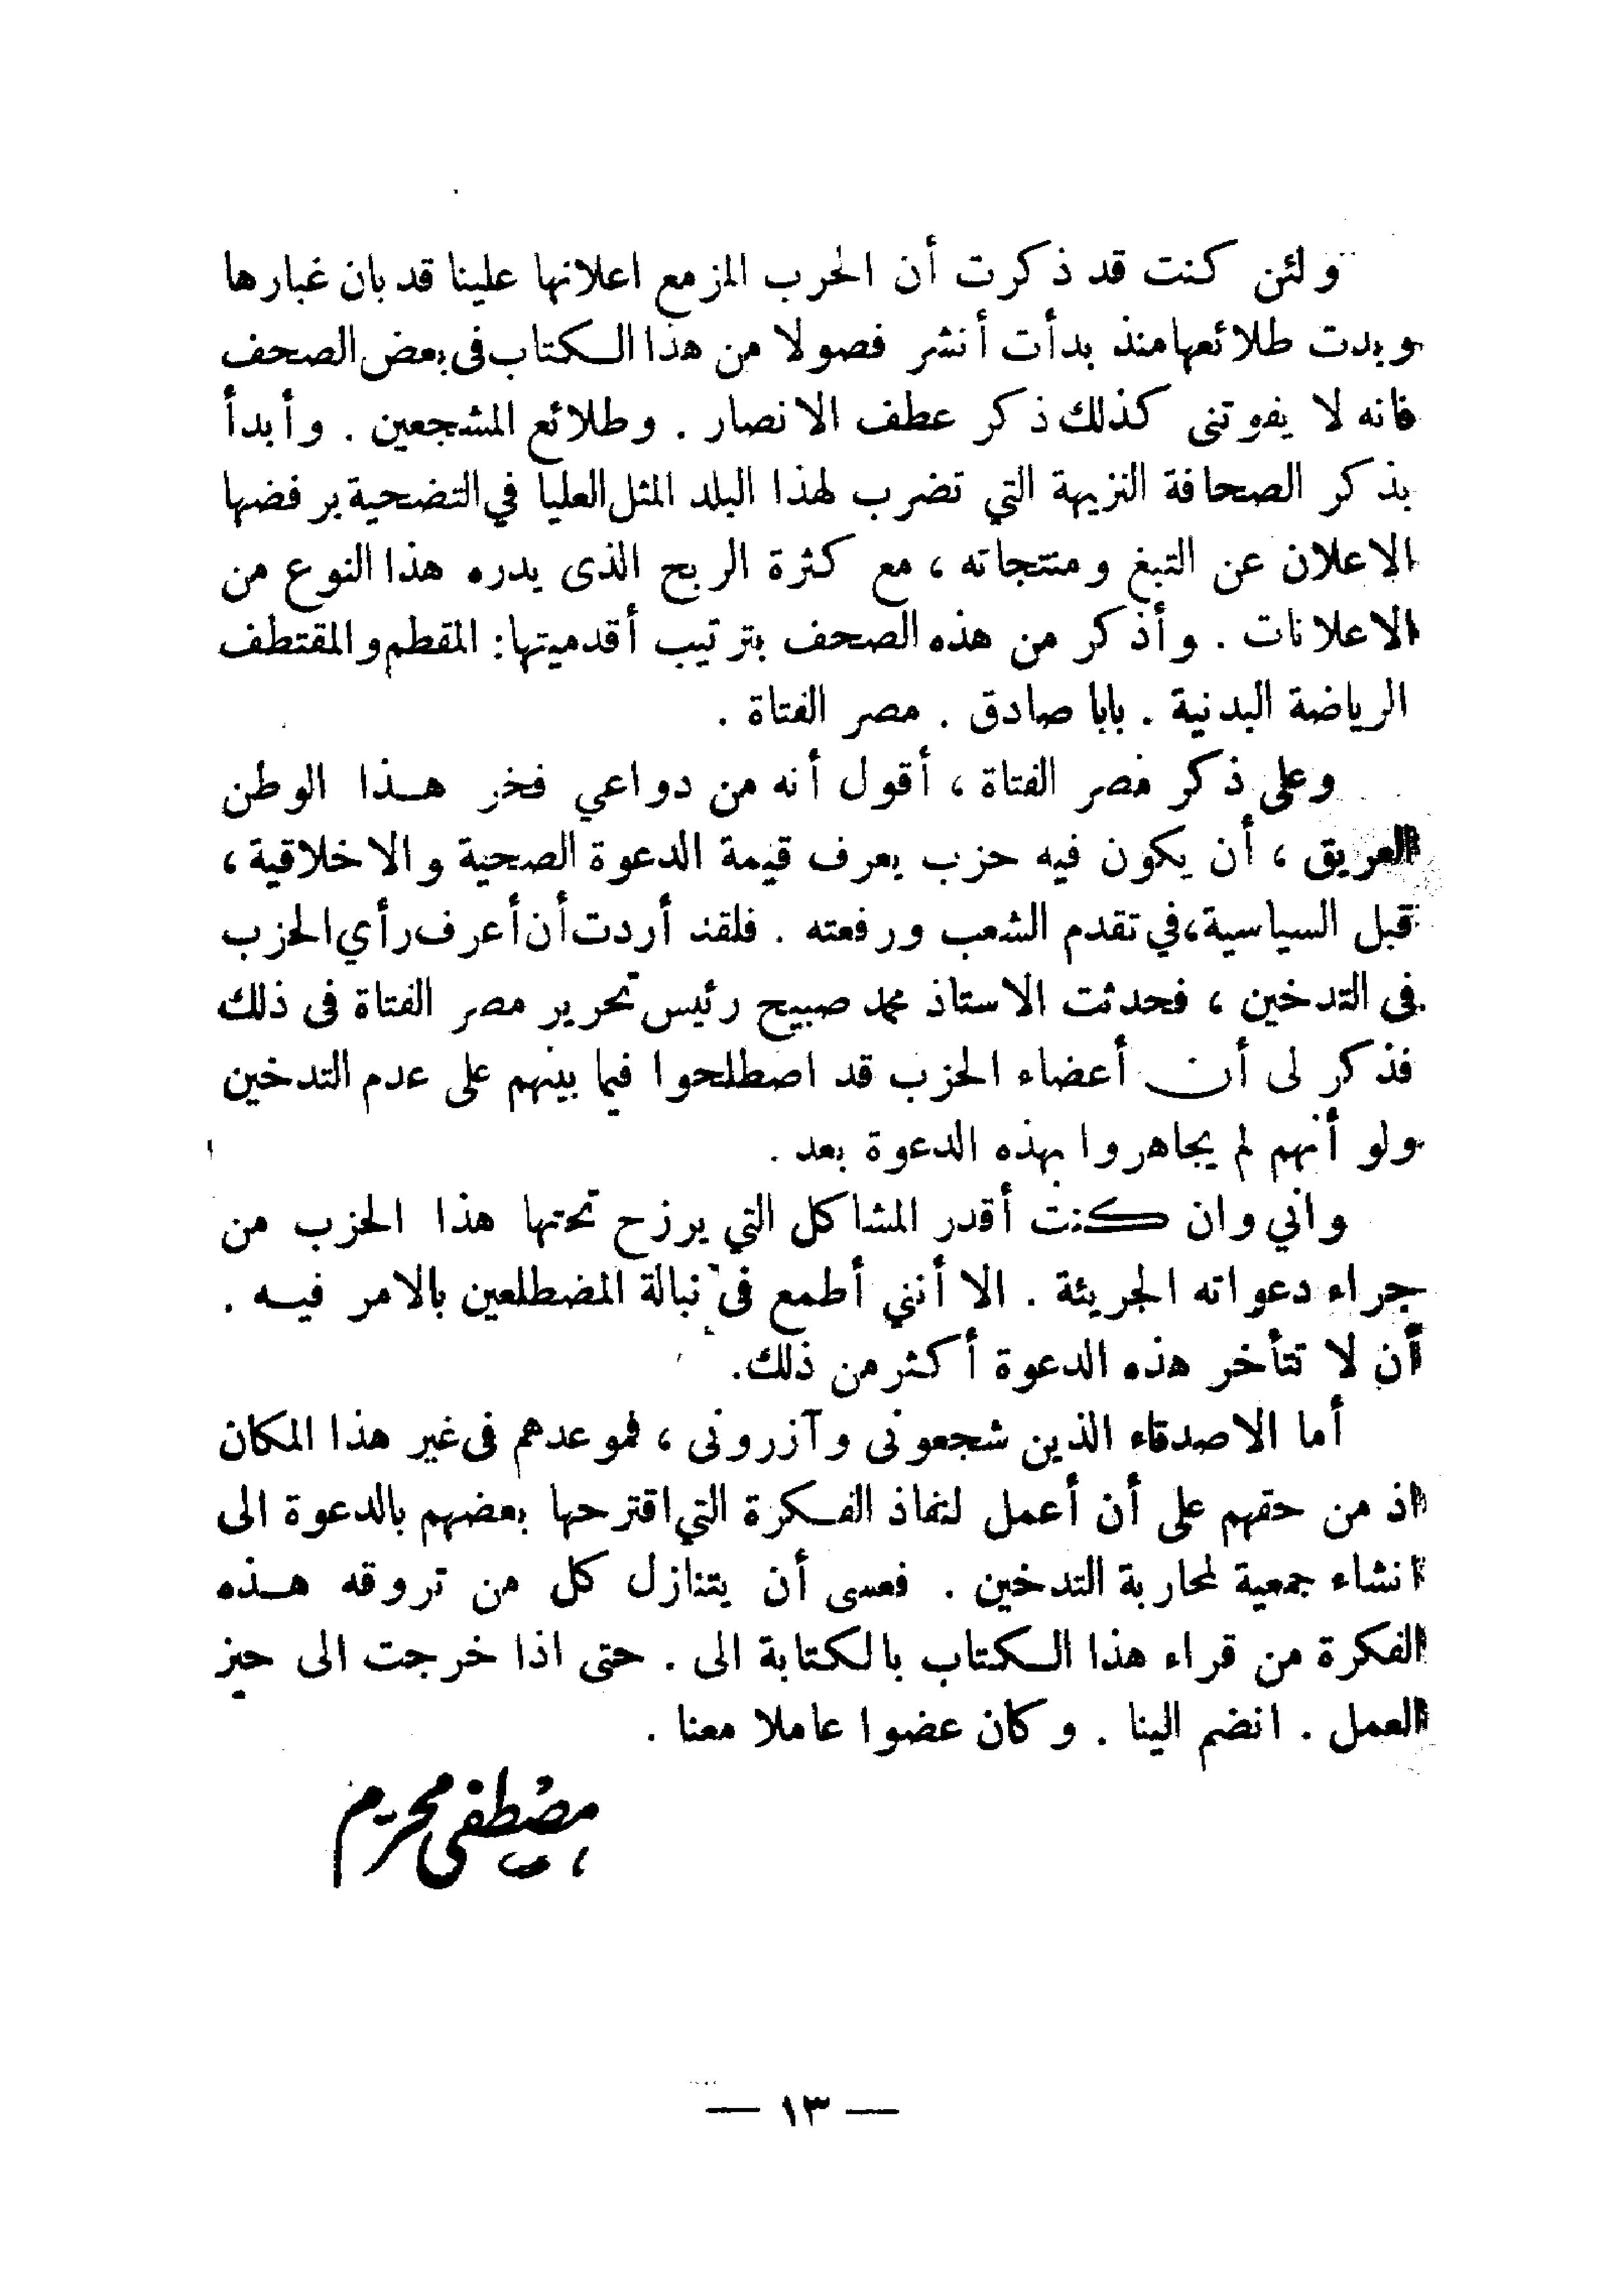 ولئن كنت قد ذكرت أن الحرب المزمع اعلانها علينا قد بان غبارها
وبدت طلائعها منذ بدأت أنشر فصولا من هذا الكتاب فى بعض الصحف
فانه لا يفوتنى كذلك ذكر عطف الانصار . وطلائع المشجعين . وأبدأ
بذكر الصحافة النزيهة التي تضرب لهذا البلد المثل العليا في التضحية برفضها
الاعلان عن التبغ ومنتجاته ، مع كثرة الربح الذى يدره هذا النوع من
الاعلانات . وأذكر من هذه الصحف بترتيب أقدميتها : المقطم والمقتطف
الرياضة البدنية . بابا صادق . مصر الفتاة .
وعلى ذكر مصر الفتاة ، أقول أنه من دواعي فخر هذا الوطن
العريق ، أن يكون فيه حزب يعرف قيمة الدعوة الصحية والاخلاقية ،
قبل السياسية ، في تقدم الشعب ورفعته . فلقد أردت أن أعرف رأي الحزب
فى التدخين ، فحدثت الاستاذ محمد صبيح رئيس تحرير مصر الفتاة فى ذلك
فذكر لى أن أعضاء الحزب قد اصطلحوا فيما بينهم على عدم التدخين
ولو أنهم لم يجاهروا بهذه الدعوة بعد .
واني وان كنت أقدر المشاكل التي يرزح تحتها هذا الحزب من
جراء دعواته الجريئة . الا أنني أطمع فى نبالة المضطلعين بالامر فيه .
أن لا تتأخر هذه الدعوة أكثر من ذلك .
أما الاصدقاء الذين شجعونى وآزرونى ، فموعدهم فى غير هذا المكان
اذ من حقهم على أن أعمل لنفاذ الفكرة التي اقترحها بعضهم بالدعوة الى
انشاء جمعية لمحاربة التدخين . فعسى أن يتنازل كل من تروقه هذه
الفكرة من قراء هذا الكتاب بالكتابة الى . حتى اذا خرجت الى حيز
العمل . انضم الينا . وكان عضوا عاملا معنا .
مصطفى محرم
— ١٣ —